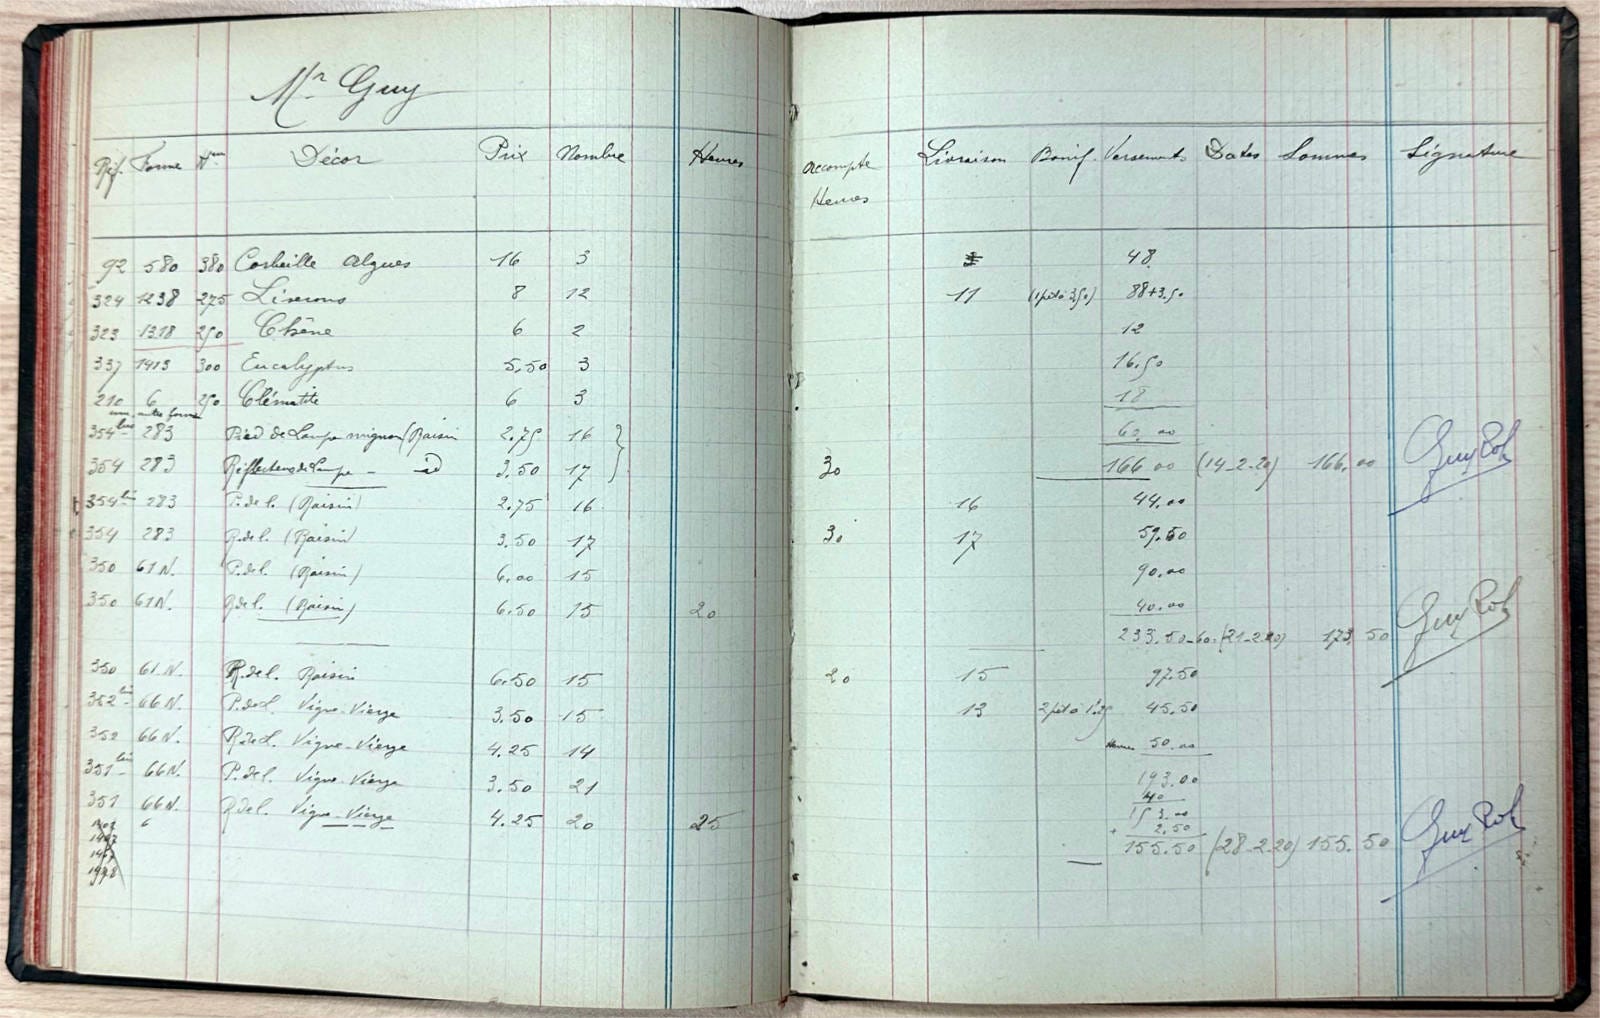 Mr Guy
Réf. Forme Heur Décor Prix Nombre Heures accompte Heures Livraison Bonif. Versements Dates Sommes Signature
92 580 380 Corbeille Algues 16 3 48
324 1238 275 Liserons 8 12 11 (1 pièt à 3,50) 88+3.50
323 1318 250 Chêne 6 2 12
337 1413 300 Eucalyptus 5,50 3 16.50
210 6 250 Clématite 6 3 18
une autre forme
354 bis 283 Pied de Lampe mignon (Raisin 2.75 16 60,00
354 283 Réflecteurs de Lampe - id 3.50 17 30 166 00 (14-2-20) 166,00 Guy Rol
354 bis 283 P. de l. (Raisin) 2.75 16 16 44,00
354 283 R. de l. (Raisin) 3.50 17 30 17 59.50
350 61 N. P. de l. (Raisin) 6,00 15 90,00
350 61 N. R. de l. (Raisin) 6.50 15 20 40,00
233.50-60=(21-2-20) 173,50 Guy Rol
350 61 N. R. de l. Raisin 6.50 15 20 15 97.50
352 bis 66 N. P. de L. Vigne-Vierge 3.50 15 13 2 pièt à 1.25 45.50
352 66 N. R. de L. Vigne-Vierge 4.25 14 Heures 50.00
351 bis 66 N. P. de l. Vigne-Vierge 3.50 21 193.00
40
351 66 N. R. de l. Vigne-Vierge 4.25 20 25 153.00
6 + 2.50
1407 155.50 (28-2-20) 155.50 Guy Rol